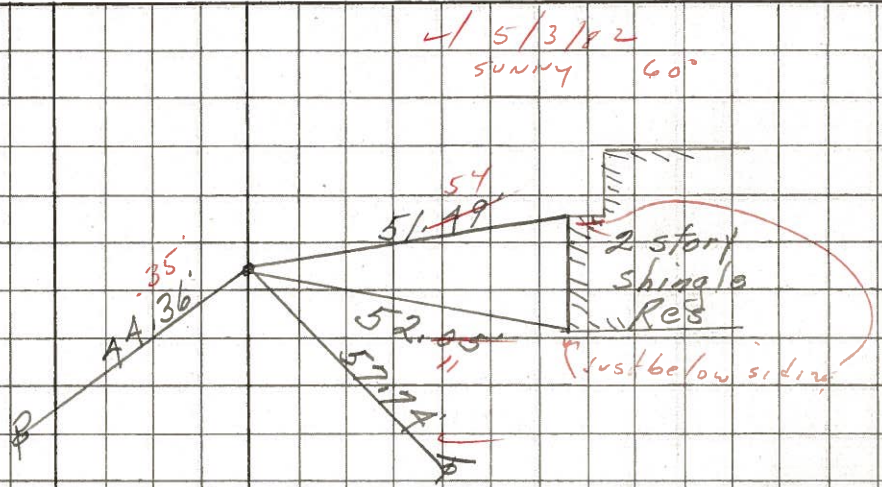 ✓ 5/3/82
SUNNY 60°
54
51.49
35
44.36
2 story
shingle
Res
52.05
11
57.74
just below siding